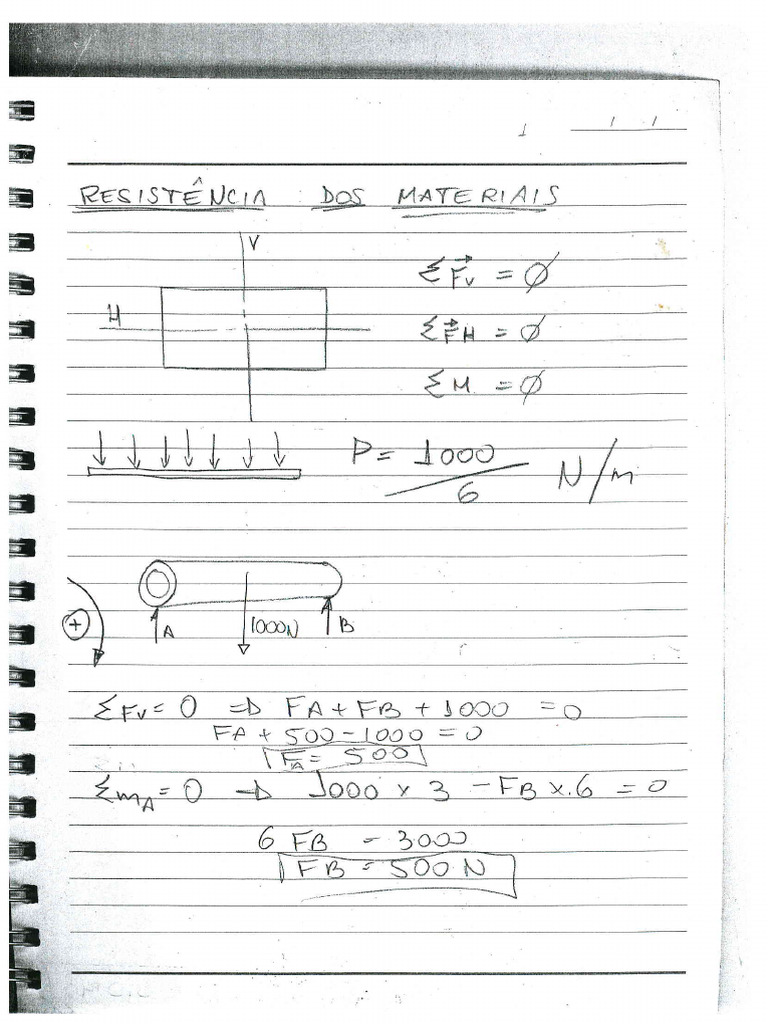 1 / /
RESISTÊNCIA DOS MATERIAIS
V
H
ΣF⃗v = ∅
ΣF⃗H = ∅
ΣM = ∅
P = 1000/6 N/m
+
A 1000N B
ΣFv = 0 ⇒ FA + FB + 1000 = 0
FA + 500 - 1000 = 0
FA = 500
ΣmA = 0 ⇒ 1000 x 3 - FB x.6 = 0
6 FB = 3000
FB = 500 N